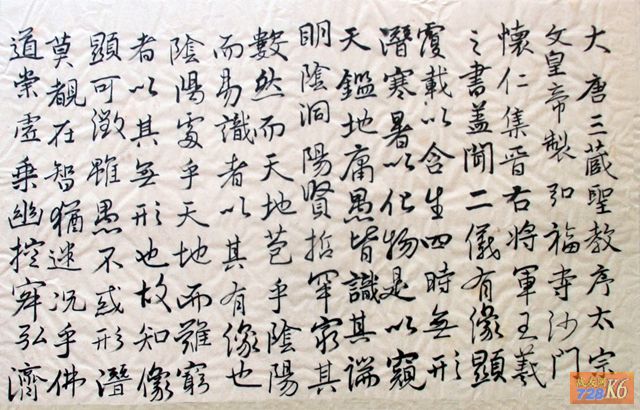 大唐三藏聖教序太宗
文皇帝製弘福寺沙門
懷仁集晉右將軍王羲
之書蓋聞二儀有像顯
覆載以含生四時無形
潛寒暑以化物是以窺
天鑑地庸愚皆識其端
明陰洞陽賢哲罕窮其
數然而天地苞乎陰陽
而易識者以其有像也
陰陽處乎天地而難窮
者以其無形也故知像
顯可徵雖愚不惑形潛
莫覩在智猶迷況乎佛
道崇虛乘幽控寂弘濟
728K6